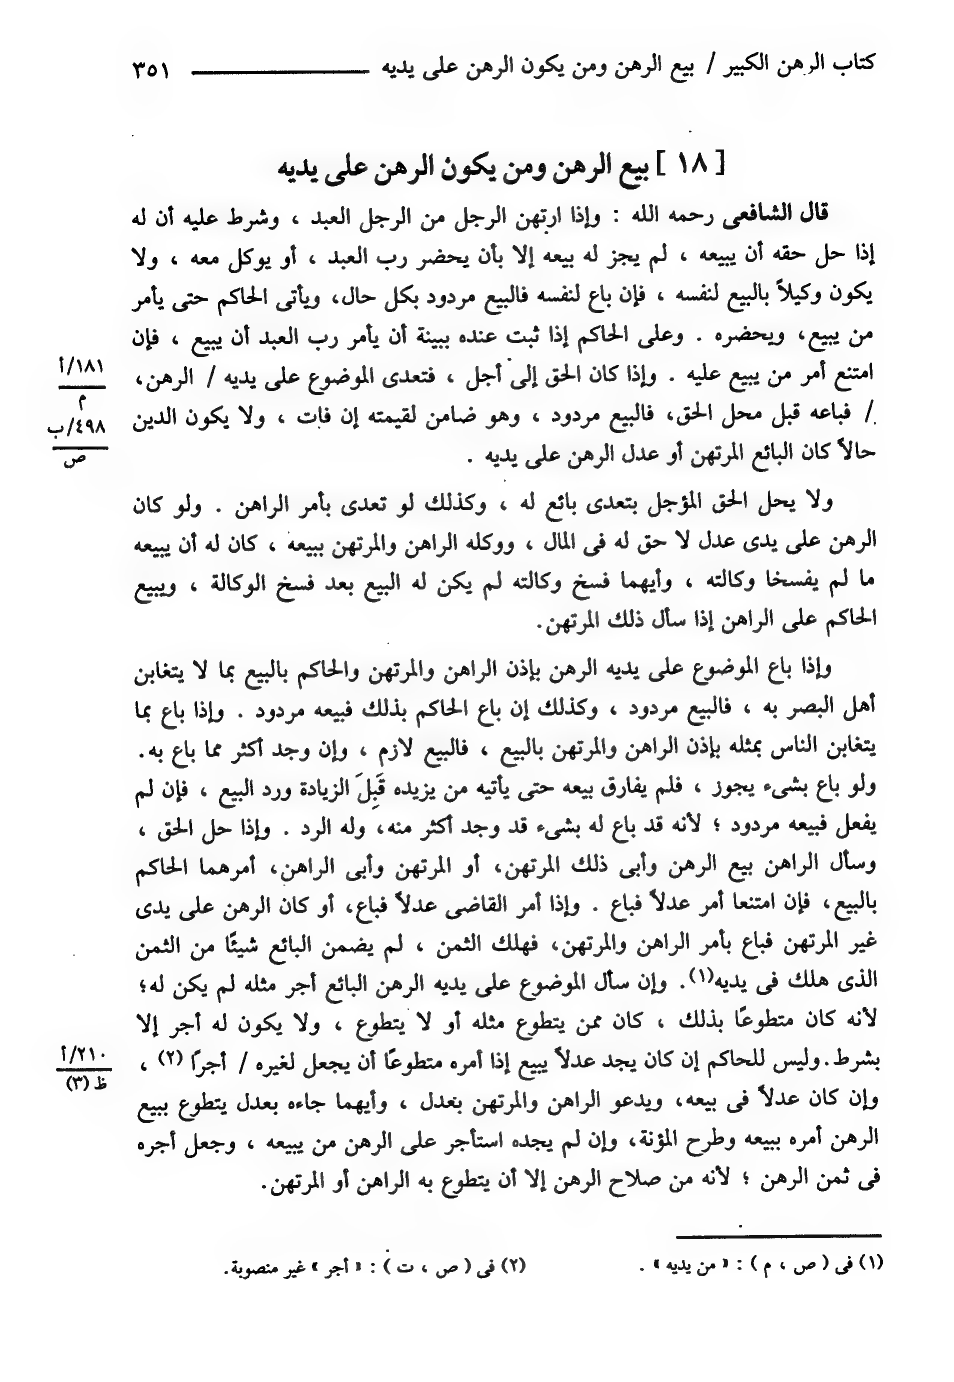 كتاب الرهن الكبير / بيع الرهن ومن يكون الرهن على يديه ٣٥١
[ ١٨ ] بيع الرهن ومن يكون الرهن على يديه
قال الشافعى رحمه الله : وإذا ارتهن الرجل من الرجل العبد ، وشرط عليه أن له
إذا حل حقه أن يبيعه ، لم يجز له بيعه إلا بأن يحضر رب العبد ، أو يوكل معه ، ولا
يكون وكيلاً بالبيع لنفسه ، فإن باع لنفسه فالبيع مردود بكل حال، ويأتى الحاكم حتى يأمر
من يبيع، ويحضره . وعلى الحاكم إذا ثبت عنده ببينة أن يأمر رب العبد أن يبيع ، فإن
امتنع أمر من يبيع عليه . وإذا كان الحق إلى أجل ، فتعدى الموضوع على يديه / الرهن،
١٨١/أ
م
/ فباعه قبل محل الحق، فالبيع مردود ، وهو ضامن لقيمته إن فات ، ولا يكون الدين
٤٩٨/ب
ص
حالاً كان البائع المرتهن أو عدل الرهن على يديه .
ولا يحل الحق المؤجل بتعدى بائع له ، وكذلك لو تعدى بأمر الراهن . ولو كان
الرهن على يدى عدل لا حق له فى المال ، ووكله الراهن والمرتهن ببيعه ، كان له أن يبيعه
ما لم يفسخا وكالته ، وأيهما فسخ وكالته لم يكن له البيع بعد فسخ الوكالة ، ويبيع
الحاكم على الراهن إذا سأل ذلك المرتهن.
وإذا باع الموضوع على يديه الرهن بإذن الراهن والمرتهن والحاكم بالبيع بما لا يتغابن
أهل البصر به ، فالبيع مردود ، وكذلك إن باع الحاكم بذلك فبيعه مردود . وإذا باع بما
يتغابن الناس بمثله بإذن الراهن والمرتهن بالبيع ، فالبيع لازم ، وإن وجد أكثر مما باع به.
ولو باع بشىء يجوز ، فلم يفارق بيعه حتى يأتيه من يزيده قَبِلَ الزيادة ورد البيع ، فإن لم
يفعل فبيعه مردود ؛ لأنه قد باع له بشىء قد وجد أكثر منه، وله الرد . وإذا حل الحق ،
وسأل الراهن بيع الرهن وأبى ذلك المرتهن، أو المرتهن وأبى الراهن، أمرهما الحاكم
بالبيع، فإن امتنعا أمر عدلاً فباع . وإذا أمر القاضى عدلاً فباع، أو كان الرهن على يدى
غير المرتهن فباع بأمر الراهن والمرتهن، فهلك الثمن ، لم يضمن البائع شيئًا من الثمن
الذى هلك فى يديه(١). وإن سأل الموضوع على يديه الرهن البائع أجر مثله لم يكن له؛
لأنه كان متطوعًا بذلك ، كان ممن يتطوع مثله أو لا يتطوع ، ولا يكون له أجر إلا
بشرط. وليس للحاكم إن كان يجد عدلاً يبيع إذا أمره متطوعًا أن يجعل لغيره / أجرًا (٢) ،
٢١٠/أ
ظ (٣)
وإن كان عدلاً فى بيعه، ويدعو الراهن والمرتهن بعدل ، وأيهما جاءه بعدل يتطوع ببيع
الرهن أمره ببيعه وطرح المؤنة، وإن لم يجده استأجر على الرهن من يبيعه ، وجعل أجره
فى ثمن الرهن ؛ لأنه من صلاح الرهن إلا أن يتطوع به الراهن أو المرتهن.
(١) فى ( ص ، م ) : « من يديه » . (٢) فى ( ص ، ت ) : « أجر » غير منصوبة.